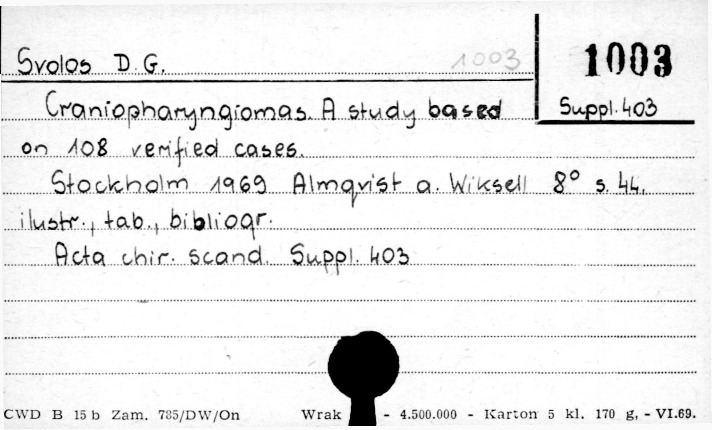 Svolos D.G. 1003
1003
Suppl. 403
Craniopharyngiomas. A study based
on 108 verified cases.
Stockholm 1969 Almqvist a. Wiksell 8° s. 44.
ilustr., tab., bibliogr.
Acta chir. scand. Suppl. 403
CWD B 15 b Zam. 785/DW/On Wrak - 4.500.000 - Karton 5 kl. 170 g. - VI.69.